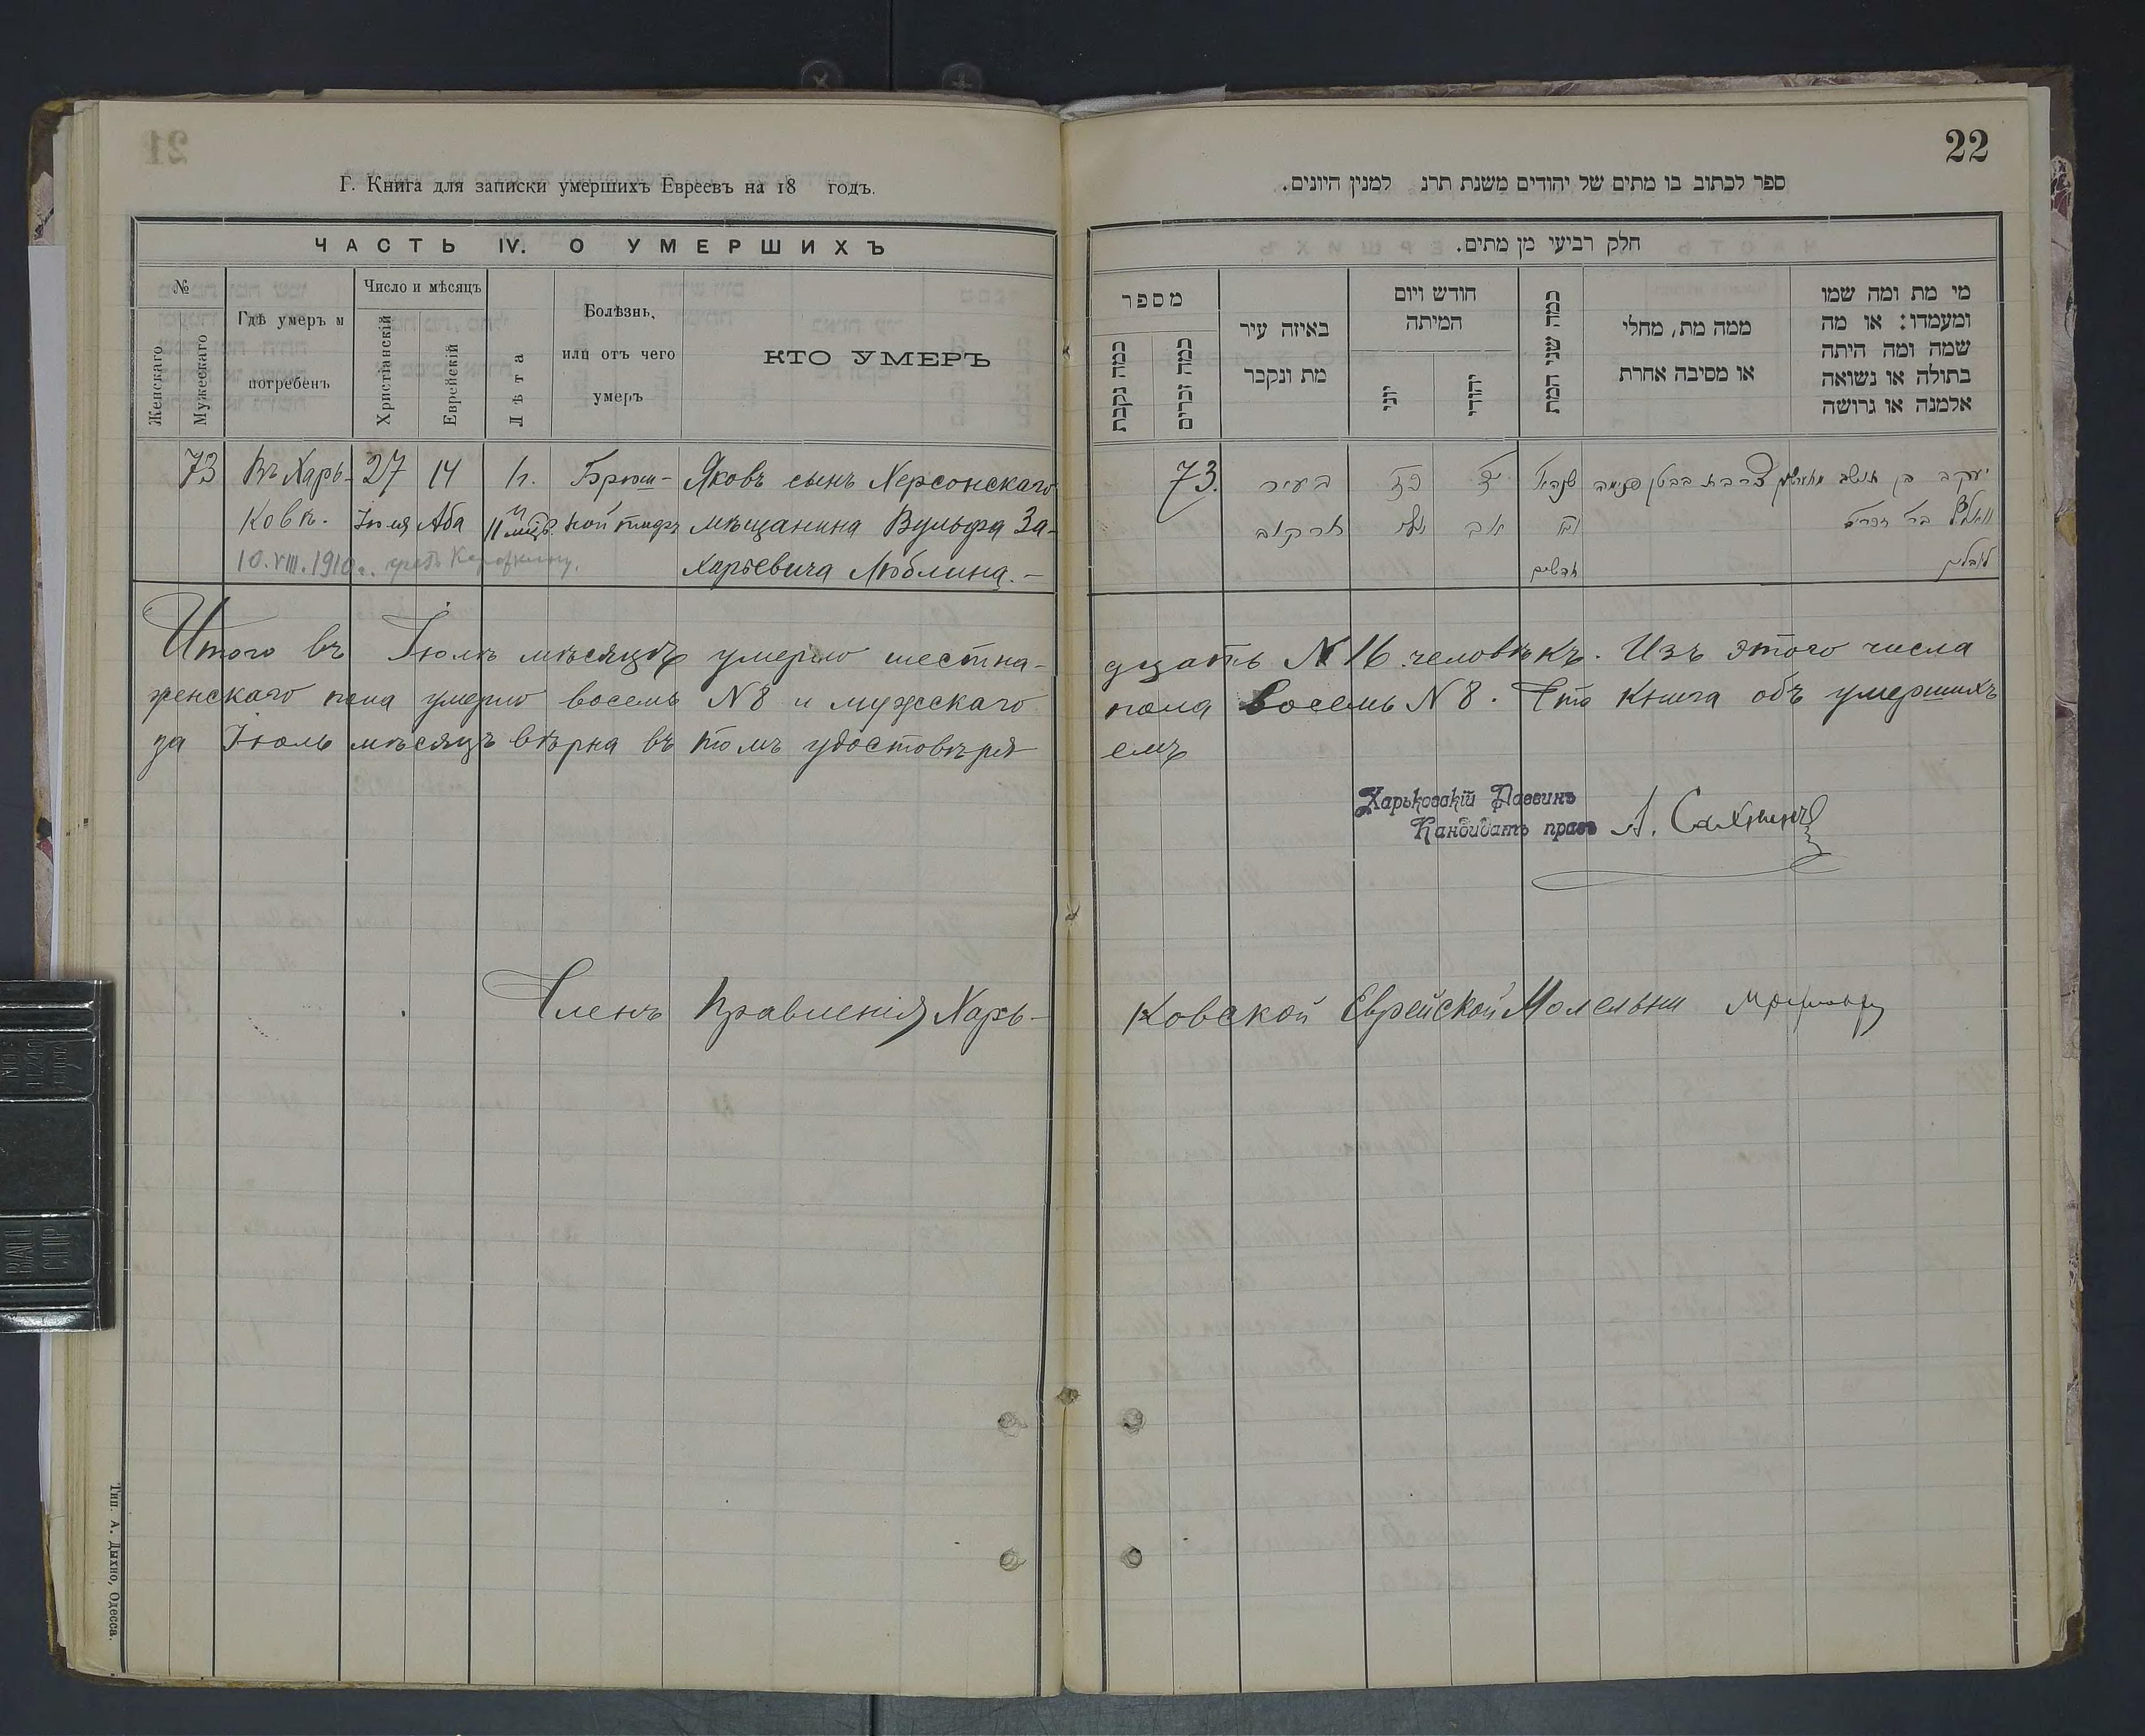 22
Г. Книга для записки умершихъ Евреевъ на 18 годъ.
ЧАСТЬ IV. О УМЕРШИХЪ
№
Женскаго
Мужескаго
Гдѣ умеръ и
погребенъ
Число и мѣсяцъ
Христіанскій
Еврейскій
Лѣта
Болѣзнь,
или отъ чего
умеръ
КТО УМЕРЪ
73 Въ Харь- 27 14 Брюш- Яковъ сынъ Херсонскаго
ковѣ. Іюля Аба 11 мѣс. ной тифъ мѣщанина Вульфа За-
10.VIII.1910г.
харьевича Люблина.-
ספר לכתוב בו מתים של יהודים משנת תרנ למנין היונים.
חלק רביעי מן מתים.
מספר
כמה נקבות
כמה זכרים
באיזה עיר
מת ונקבר
חודש ויום
המיתה
יוני
יהודי
כמה שני המת
ממה מת, מחלי
או מסיבה אחרת
מי מת ומה שמו
ומעמדו: או מה
שמה ומה היתה
בתולה או נשואה
אלמנה או גרושה
73. בעיר כז יד
חרקוב אב
חדשים לובלין
Итого въ Іюлѣ мѣсяцѣ умерло шестна-
дцать №16 человѣкъ. Изъ этого числа
женскаго пола умерло восемь №8 и мужскаго
пола восемь №8. Что книга объ умершихъ
за Іюль мѣсяцъ вѣрна въ томъ удостовѣря-
емъ
Харьковскій Раввинъ
Кандидатъ правъ А.
Членъ Правленія Харь-
ковской Еврейской Молельни
Тип. А. Дыхно, Одесса.
BALL
CLIP